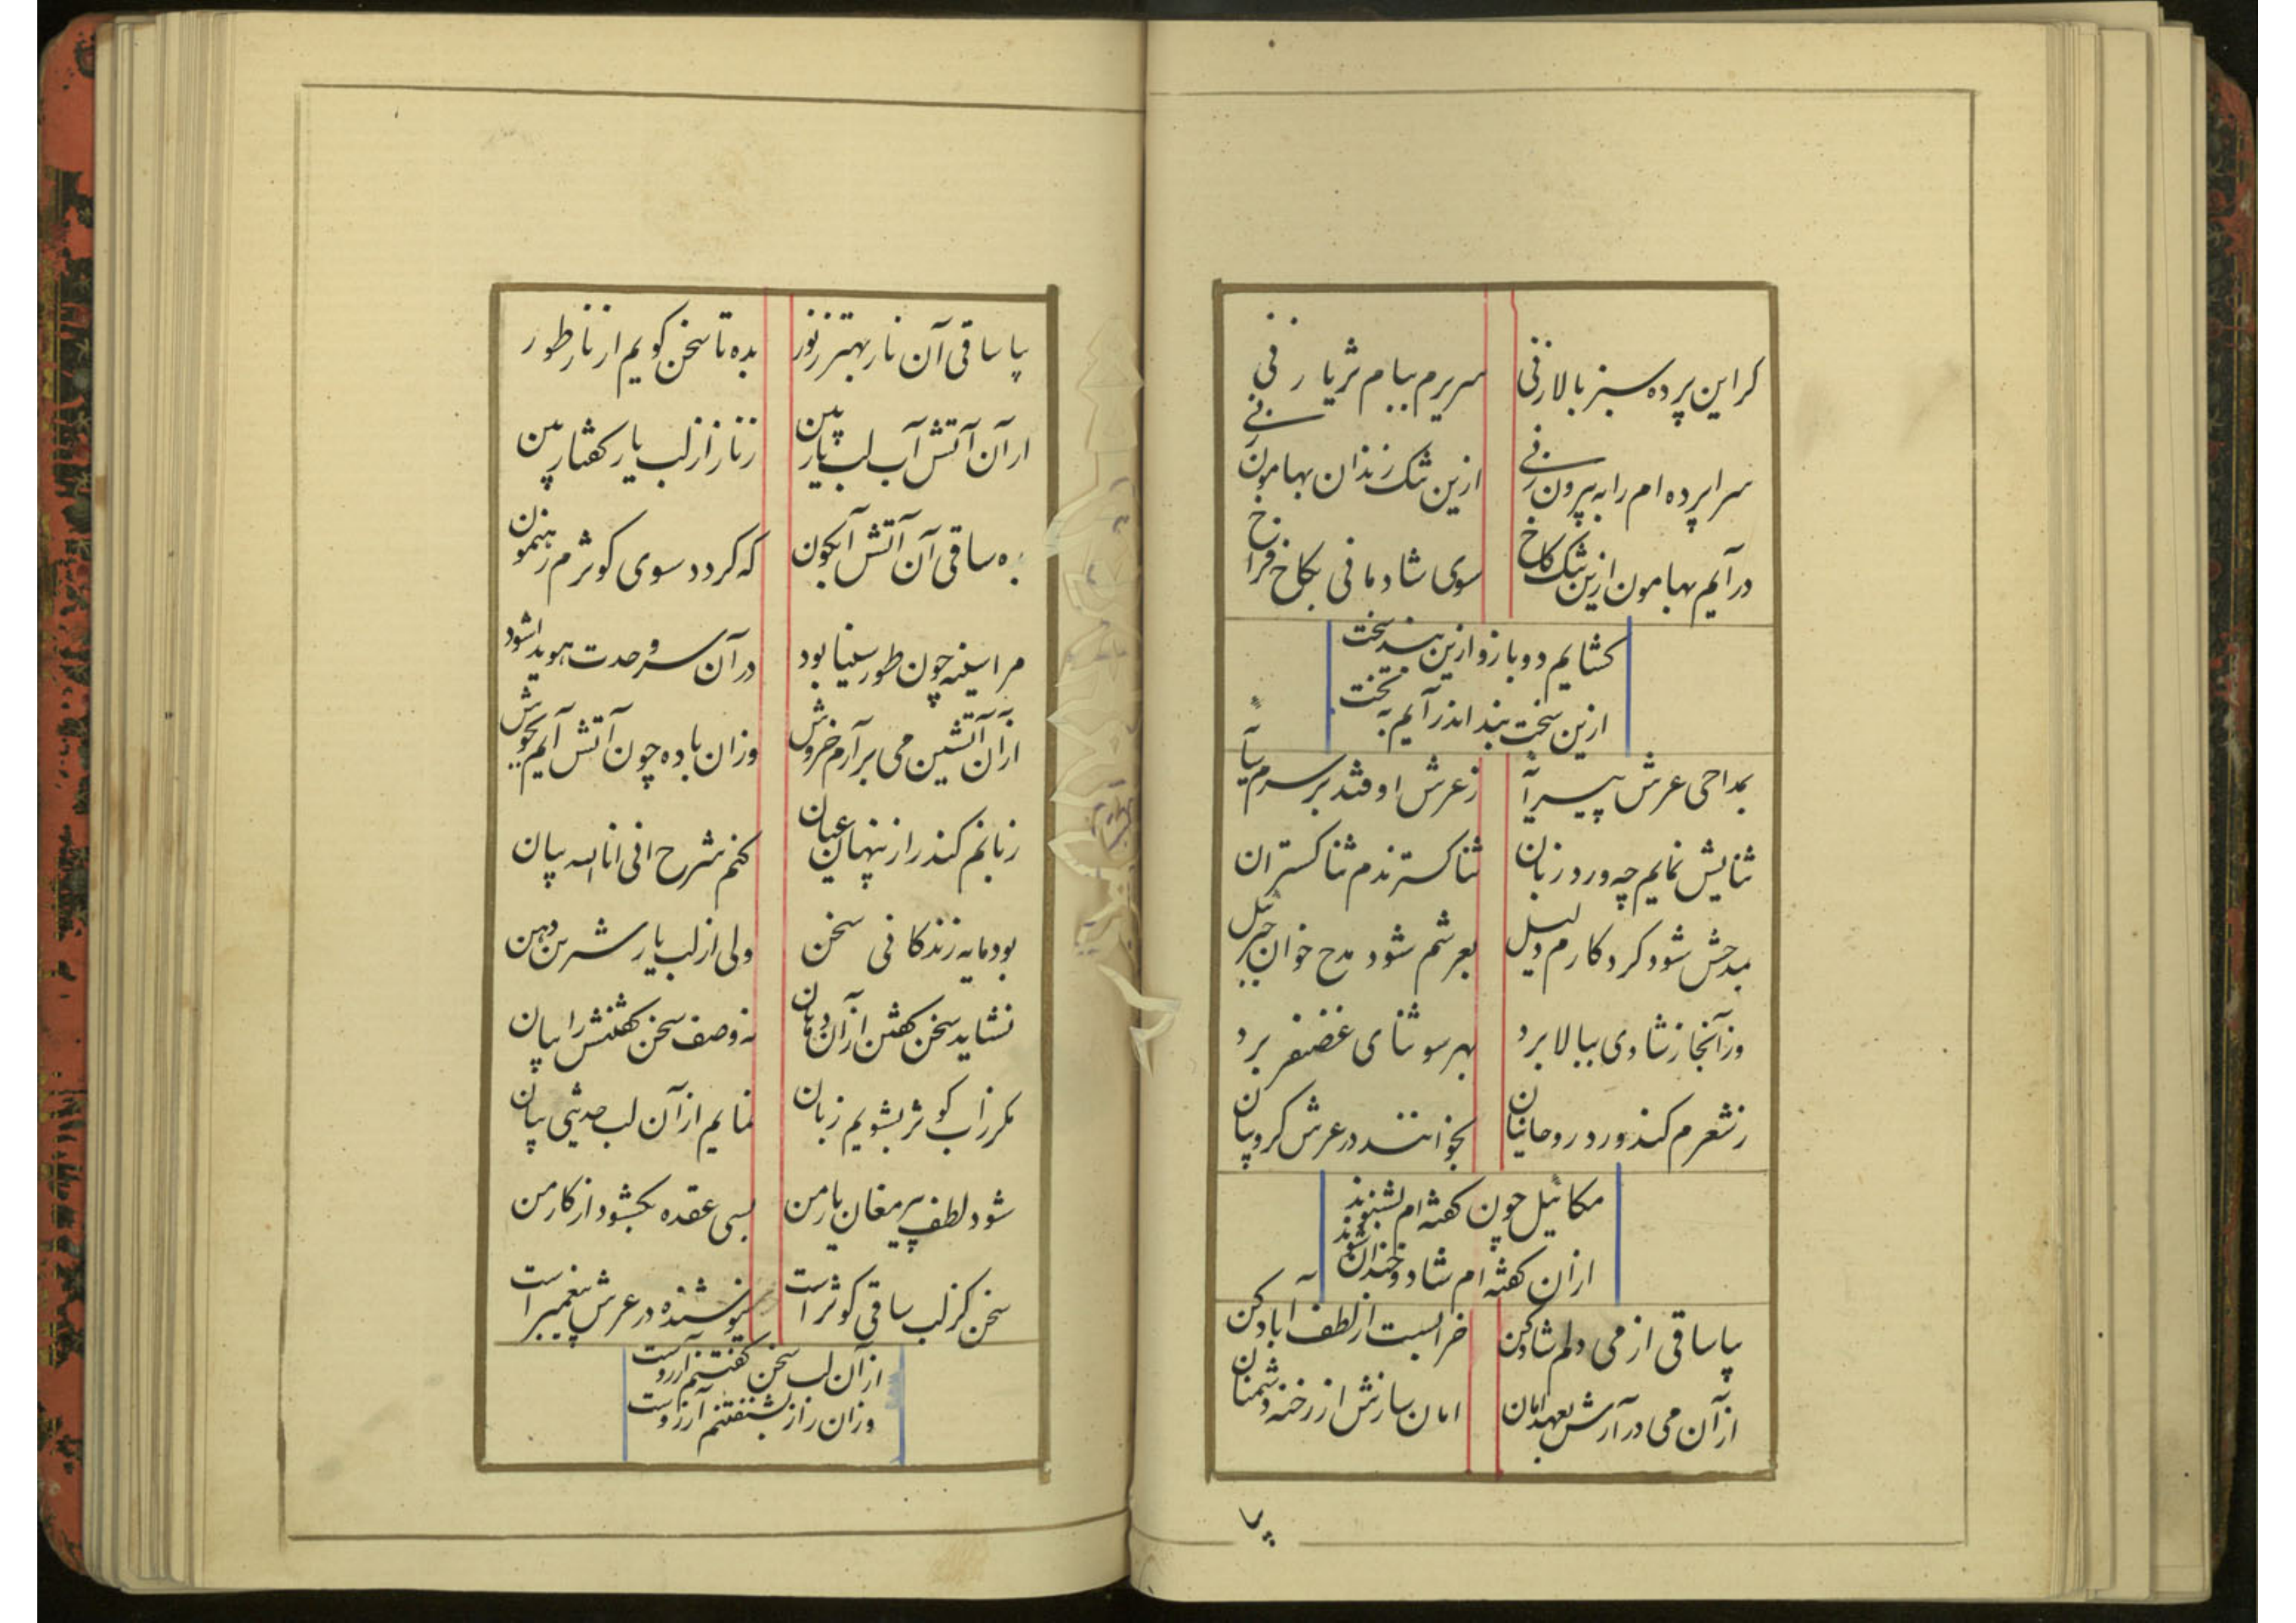 کر این پرده سبز بالا زنی سریرم ببام ثریا زنی
سراپرده ام را به بیرون زنی ازین تنک زندان بهامون زنی
در آیم بهامون ازین تنک کاخ سوی شادمانی بکاخ فراخ
کشایم دو بازو ازین بند سخت
ازین سخت بند اندر آیم به تخت
بمداحی عرش پیرا
ز عرش اوفتد بر سرم
ثنایش نمایم چه ورد زبان ثنا کسترندم ثنا کستران
بمدحش شود کرد کارم دلیل بعرشم شود مدح خوان جبرئیل
وز آنجا ز شادی ببالا برد بهر سو ثنای غضنفر برد
ز شعرم کند ورد روحانیان بخوانند در عرش کروبیان
مکائیل چون کفته ام بشنوند
از آن کفته ام شاد و خندان شوند
بیا ساقی از می دلم شاد کن خرابست از لطف آباد کن
از آن می در آرش بعهد امان امان سازش از رخنه دشمنان
بیا
بیا ساقی آن نار بهتر ز نور بده تا سخن کویم از نار طور
از آن آتش آب لب یار بین ز نار از لب یار کفتار بین
بده ساقی آن آتش آبکون که کردد سوی کوثرم رهنمون
مرا سینه چون طور سینا بود در آن سر وحدت هویدا شود
از آن آتشین می بر آرم خروش وزان باده چون آتش آیم بجوش
زبانم کند راز پنهان عیان کنم شرح انی انا الله بیان
بود مایه زندکانی سخن ولی از لب یار شیرین دهن
نشاید سخن کفتن از آن دهان نه وصف سخن کفتنش را بیان
مکر ز آب کوثر بشویم زبان نمایم از آن لب حدیثی بیان
شود لطف پیر مغان یار من بسی عقده بکشود از کار من
سخن کز لب ساقی کوثر است نیوشنده در عرش پیغمبر است
از آن لب سخن کفتنم آرزوست
وزان راز بشنفتنم آرزوست